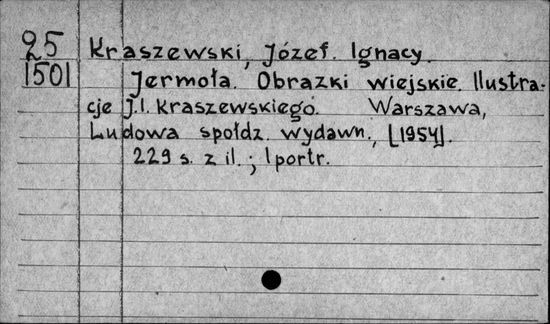 25 Kraszewski, Józef. Ignacy.
1501 Jermoła. Obrazki wiejskie. Ilustra-
cje J.I. Kraszewskiego. Warszawa,
Ludowa społdz. wydawn., [1954].
229 s. z il. ; 1 portr.